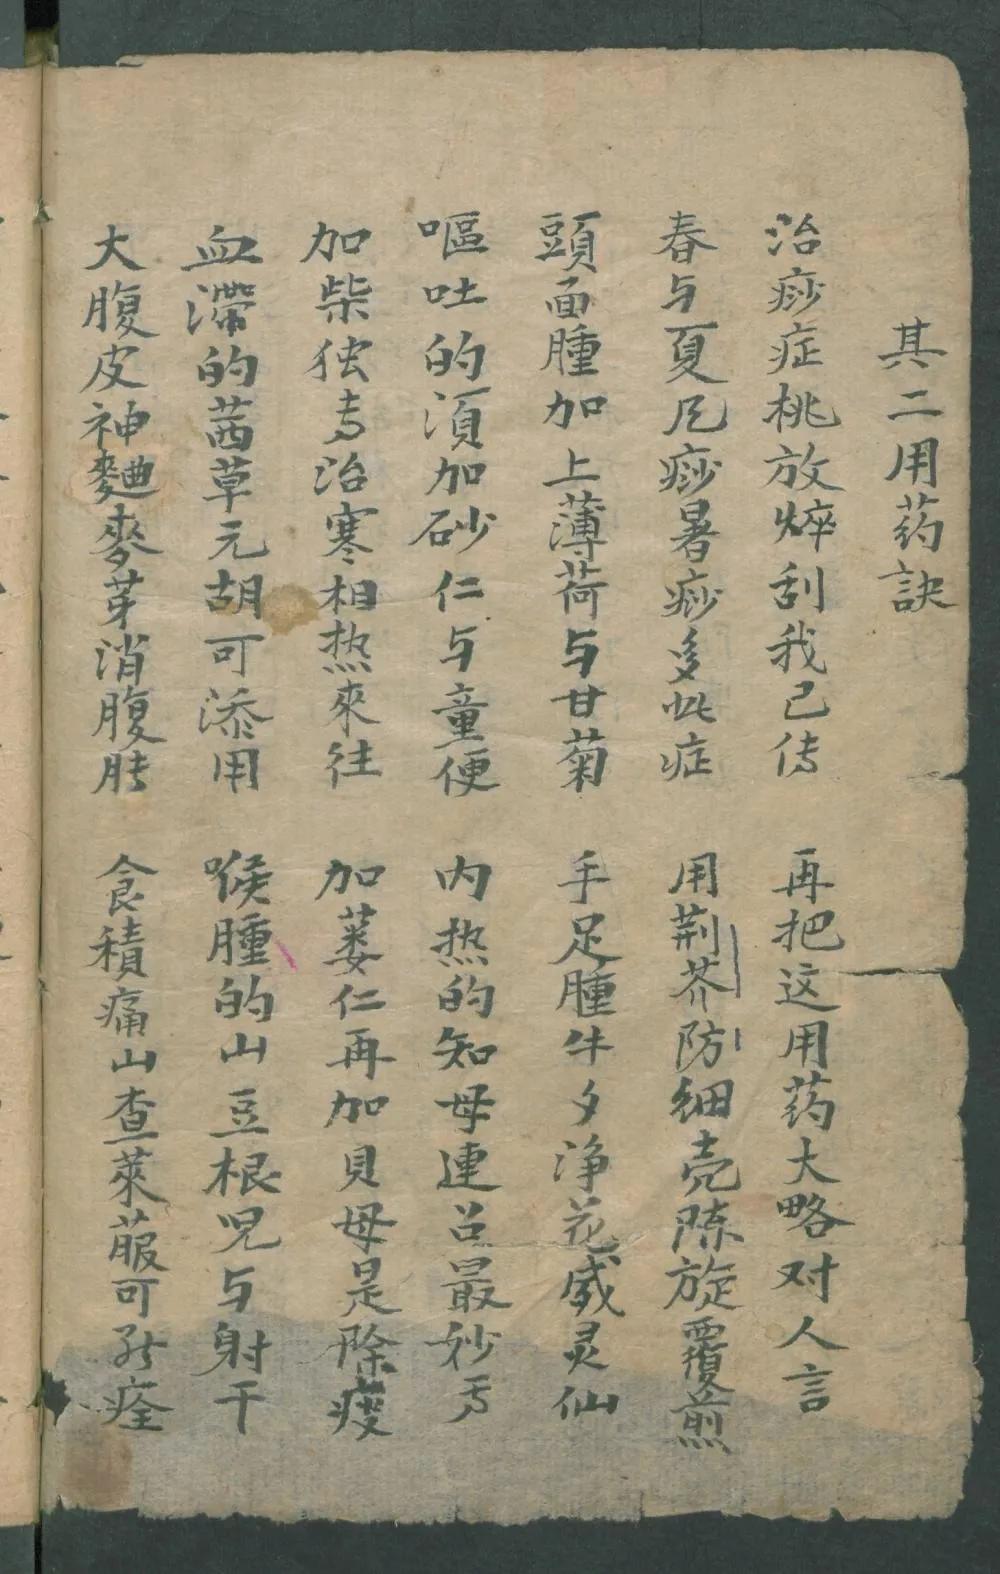 其二用药訣
治痧症桃放焠刮我已传 再把这用药大略对人言
春与夏凡痧暑痧多此症 用荆芥防细壳陈旋覆煎
頭面腫加上薄荷与甘菊 手足腫牛夕净花威灵仙
嘔吐的湏加砂仁与童便 内热的知母連召最妙焉
加柴独专治寒相热來往 加蒌仁再加貝母是除痰
血滯的茜草元胡可添用 喉腫的山豆根児与射干
大腹皮神麯麥芽消腹胀 食積痛山查萊菔可能痊